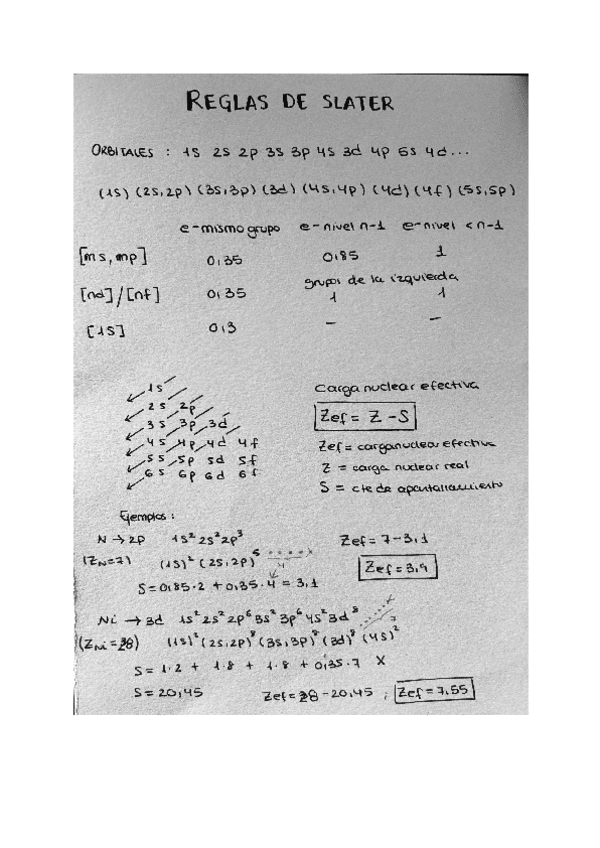 REGLAS DE SLATER
ORBITALES : 1s 2s 2p 3s 3p 4s 3d 4p 5s 4d...
(1s) (2s,2p) (3s,3p) (3d) (4s,4p) (4d) (4f) (5s,5p)
e- mismo grupo e- nivel n-1 e- nivel < n-1
[ns, np] 0,35 0,85 1
grupos de la izquierda
[nd]/[nf] 0,35 1 1
[1s] 0,3 - -
1s
2s 2p
3s 3p 3d
4s 4p 4d 4f
5s 5p 5d 5f
6s 6p 6d 6f
Carga nuclear efectiva
Zef = Z - S
Zef = carga nuclear efectiva
Z = carga nuclear real
S = cte de apantallamiento
Ejemplos :
N → 2p 1s² 2s² 2p³ Zef = 7 - 3,1
(ZN=7) (1s)² (2s,2p)⁵ 4 Zef = 3,9
S = 0,85·2 + 0,35·4 = 3,1
Ni → 3d 1s² 2s² 2p⁶ 3s² 3p⁶ 4s² 3d⁸
(ZNi = 28) (1s)² (2s,2p)⁸ (3s,3p)⁸ (3d)⁸ (4s)²
S = 1·2 + 1·8 + 1·8 + 0,35·7 X
S = 20,45 Zef = 28 - 20,45 ; Zef = 7,55